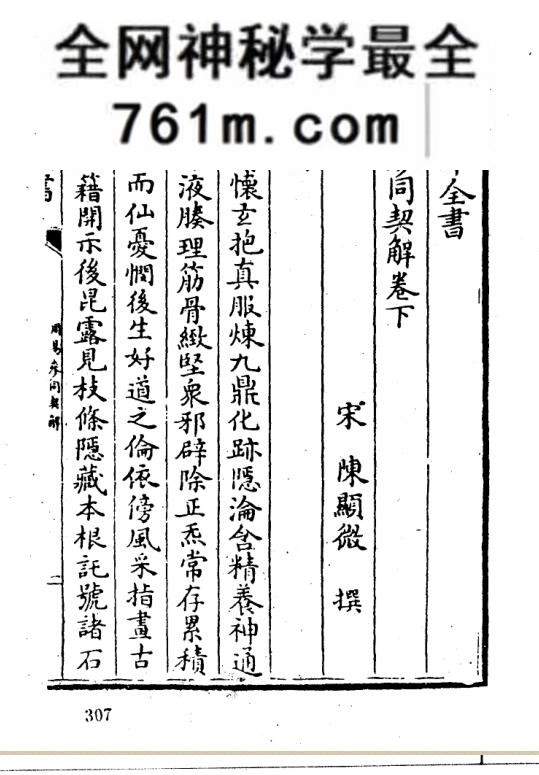 全网神秘学最全
761m.com
全書
同契解卷下
宋 陳顯微 撰
懷玄抱真服煉九鼎化跡隱淪含精養神通
液腠理筋骨緻堅衆邪辟除正炁常存累積
而仙憂憫後生好道之倫依傍風采指畫古
籍開示後昆露見枝條隱藏本根託號諸石
周易參同契解
二
307